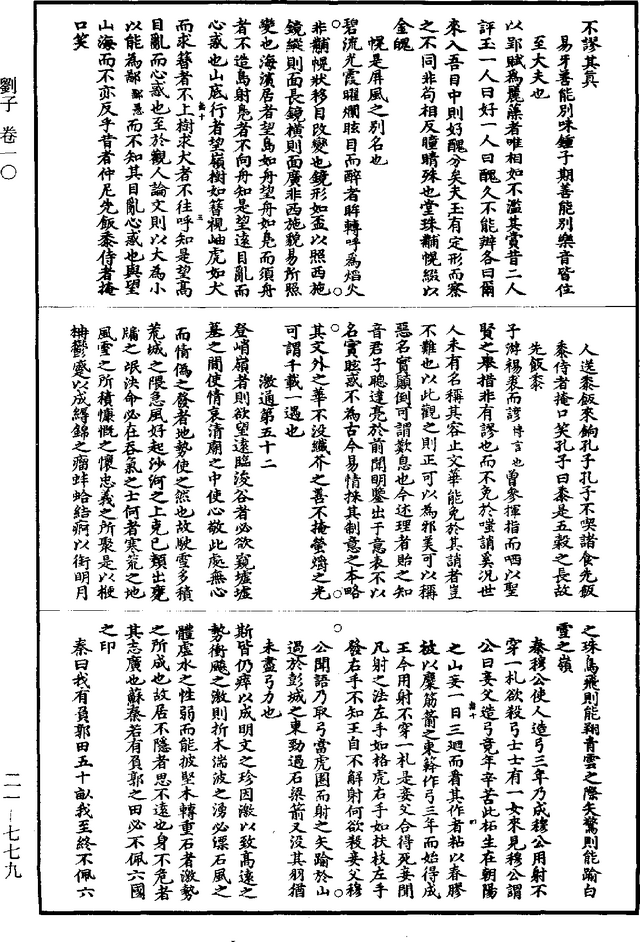 劉子　卷一〇
不謬其真
易牙善能別味鍾子期善能別樂音皆仕
至大夫也
以郢賦為麗藻者唯相如不濫其賞昔二人
評玉一人曰好一人曰醜久不能辨各曰爾
來入吾目中則好醜分矣夫玉有定形而察
之不同非苟相反瞳睛殊也堂珠黼幌綴以
金魄
幌是屏風之別名也
碧流光霞曜爛眩目而醉者眸轉呼為焰火
非黼幌狀移目改變也鏡形如盃以照西施
鏡縱則面長鏡橫則面廣非西施貌易所照
變也海濱居者望島如舟望舟如鳧而須舟
者不造島射鳧者不向舟知是望遠目亂而
心惑也山底行者望嶺樹如簪視岫虎如犬
而求簪者不上樹求犬者不往呼知是望高
目亂而心惑也至於觀人論文則以大為小
以能為鄙鄙惡而不知其目亂心惑也與望
山海而不亦反乎昔者仲尼先飯黍侍者掩
口笑
人送黍飯來餉孔子孔子不喫諸食先飯
黍侍者掩口笑孔子曰黍是五穀之長故
先飯黍
子游裼裘而諺傳言也曾參揮指而哂以聖
賢之舉措非有謬也而不免於嗤誚奚況世
人未有名稱其容止文華能免於其誚者豈
不難也以此觀之則正可以為邪美可以稱
惡名實顛倒可謂歎息也今述理者貽之知
音君子聰達亮於前聞明鑒出于意表不以
名實眩惑不為古今易情採其制意之本略
其文外之華不没纖芥之善不掩螢爝之光
可謂千載一遇也
激通第五十二
登峭嶺者則欲望遠臨浚谷者必欲窺墟墟
墓之間使情哀清廟之中使心敬此處無心
而情偽之發者地勢使之然也故駛雪多積
荒城之隈急風好起沙河之上克己類出甕
牖之氓決命必在吞氣之士何者寒荒之地
風雪之所積慷慨之懷忠義之所聚是以梗
柟鬱蹙以成縟錦之瘤蚌蛤結痾以銜明月
之珠鳥飛則能翔青雲之際矢驚則能踰白
雪之嶺
秦穆公使人造弓三年乃成穆公用射不
穿一札欲殺弓士士有一女來見穆公謂
公曰妾父造弓竟年辛苦此柘生在朝陽
之山妾一日三迴而看其作者粘以春膠
被以麋筋箭之東榦作弓三年而始得成
王今用射不穿一札是妾父合得死妾聞
凡射之法左手如格虎右手如扶枝左手
發右手不知王自不解射何欲殺妾父穆
公聞語乃取弓當虎圈而射之矢踰於山
過於彭城之東勁過石梁箭又没其羽猶
未盡弓力也
斯皆仍瘁以成明文之珍因激以致高遠之
勢衝飇之激則折木湍波之湧必漂石風之
體虛水之性弱而能披堅木轉重石者激勢
之所成也故居不隱者思不遠也身不危者
其志廣也蘇秦若有負郭之田必不佩六國
之印
秦曰我有負郭田五十畝我至終不佩六
二一—七七九